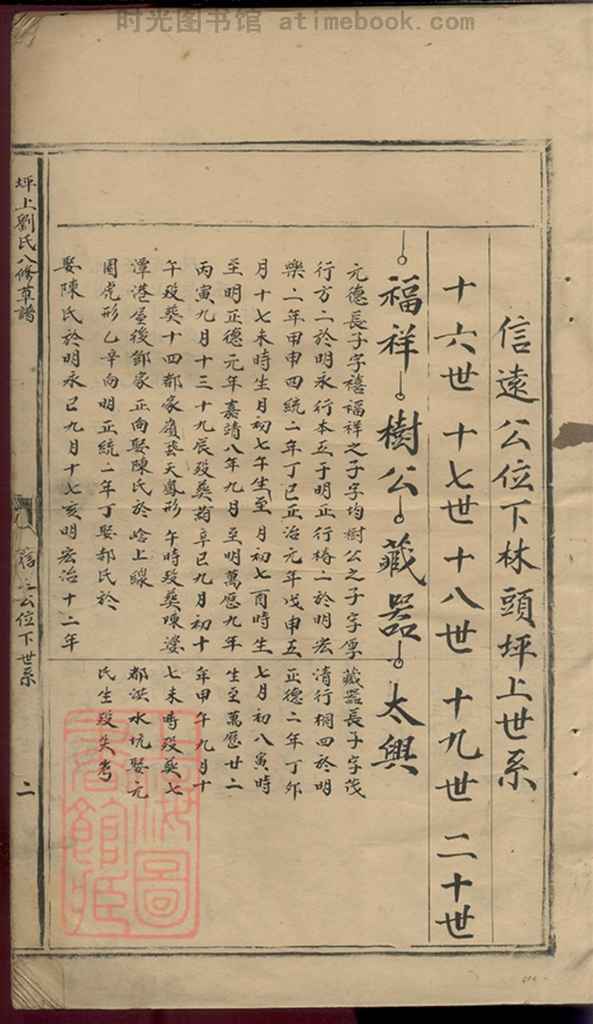 时光图书馆 atimebook.com
信遠公位下林頭坪上世系
十六世 十七世 十八世 十九世 二十世
福祥 樹公 藏器 太興
元德長子字禧福祥之子字均樹公之子字厚藏器長子字茂
行方二於明永行本五于明正行椿二於明宏清行榈四於明
樂二年甲申四統二年丁巳正治元年戊申五正德二年丁卯
月十七未時生月初七午生至月初七酉時生七月初八寅時
至明正德元年嘉請八年九月至明萬歷九年生至萬歷廿二
丙寅九月十三十九辰歿葵菊辛巳九月初十年甲午九月十
午歿葵十四都家嶺葵天鳳形午時歿葵陳婆七未時歿葵七
潭港屋後鄒家正向娶陳氏於上都洪水坑娶元
圍虎形乙辛向明正統二年丁娶郝氏於氏生歿失考
娶陳氏於明永己九月十七亥明宏治十二年
坪上劉氏八修草譜
信公位下世系
二
圖